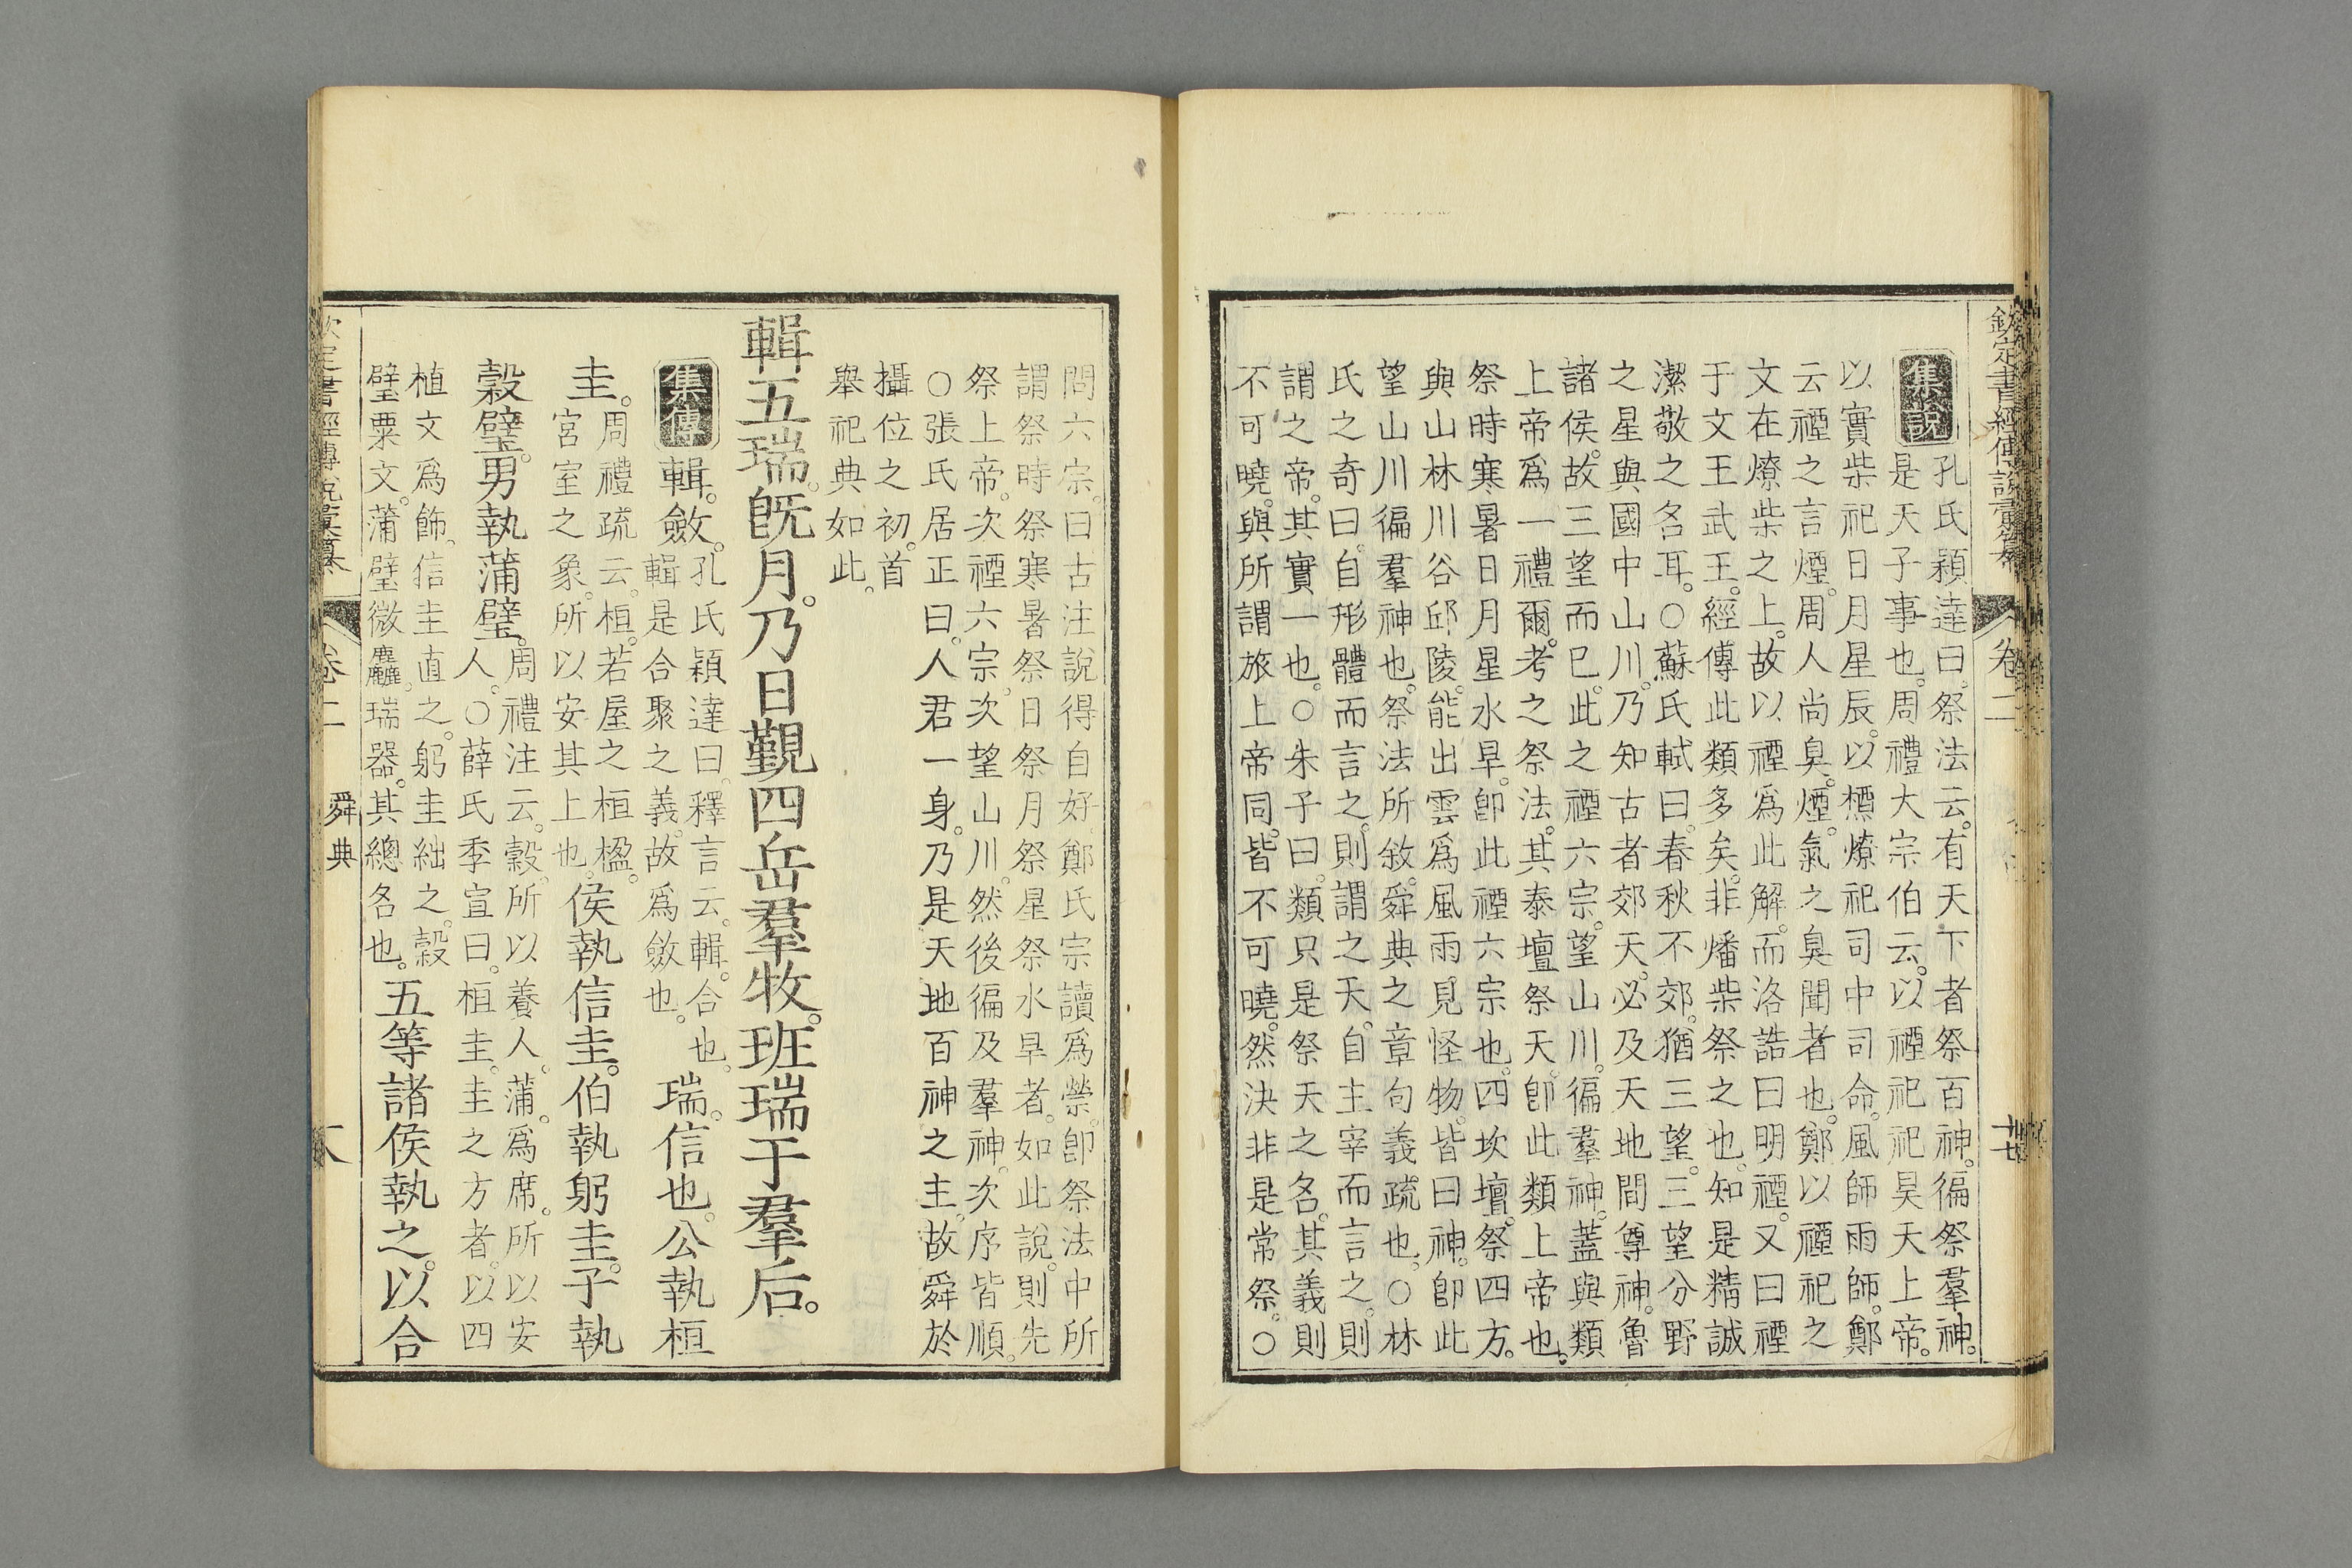 欽定書經傳說彙纂
卷二
集說
孔氏穎達曰。祭法云。有天下者祭百神。徧祭羣神。
是天子事也。周禮大宗伯云。以禋祀祀昊天上帝。
以實柴祀日月星辰。以槱燎祀司中司命。風師雨師。鄭
云禋之言煙。周人尚臭。煙。氣之臭聞者也。鄭以禋祀之
文在燎柴之上。故以禋爲此解。而洛誥曰明禋。又曰禋
于文王武王。經傳此類多矣。非燔柴祭之也。知是精誠
潔敬之名耳。○蘇氏軾曰。春秋不郊。猶三望。三望分野
之星與國中山川。乃知古者郊天。必及天地間尊神。魯
諸侯。故三望而已。此之禋六宗。望山川。徧羣神。蓋與類
上帝爲一禮爾。考之祭法。其泰壇祭天。卽此類上帝也。
祭時寒暑日月星水旱。卽此禋六宗也。四坎壇。祭四方。
與山林川谷邱陵。能出雲爲風雨。見怪物。皆曰神。卽此
望山川徧羣神也。祭法所敘。舜典之章句義疏也。○林
氏之奇曰。自形體而言之。則謂之天。自主宰而言之。則
謂之帝。其實一也。○朱子曰。類只是祭天之名。其義則
不可曉。與所謂旅上帝同。皆不可曉。然決非是常祭。○
問六宗。曰古注說得自好。鄭氏宗讀爲禜。卽祭法中所
謂祭時祭寒暑祭日祭月祭星祭水旱者。如此說。則先
祭上帝。次禋六宗。次望山川。然後徧及羣神。次序皆順。
○張氏居正曰。人君一身。乃是天地百神之主。故舜於
攝位之初。首
舉祀典如此。
輯五瑞。旣月。乃日覲四岳羣牧。班瑞于羣后。
集傳
輯。斂。
孔氏穎達曰。釋言云。輯。合也。
輯是合聚之義。故爲斂也。
瑞。信也。公執桓
圭。
周禮疏云。桓。若屋之桓楹。
宮室之象。所以安其上也。
侯執信圭。伯執躬圭。子執
穀璧。男執蒲璧。
周禮注云。穀。所以養人。蒲。爲席。所以安
人。○薛氏季宣曰。桓圭。圭之方者。以四
植文爲飾。信圭直之。躬圭絀之。穀
璧粟文。蒲璧微麤。瑞器。其總名也。
五等諸侯執之。以合
欽定書經傳說彙纂
卷二
舜典